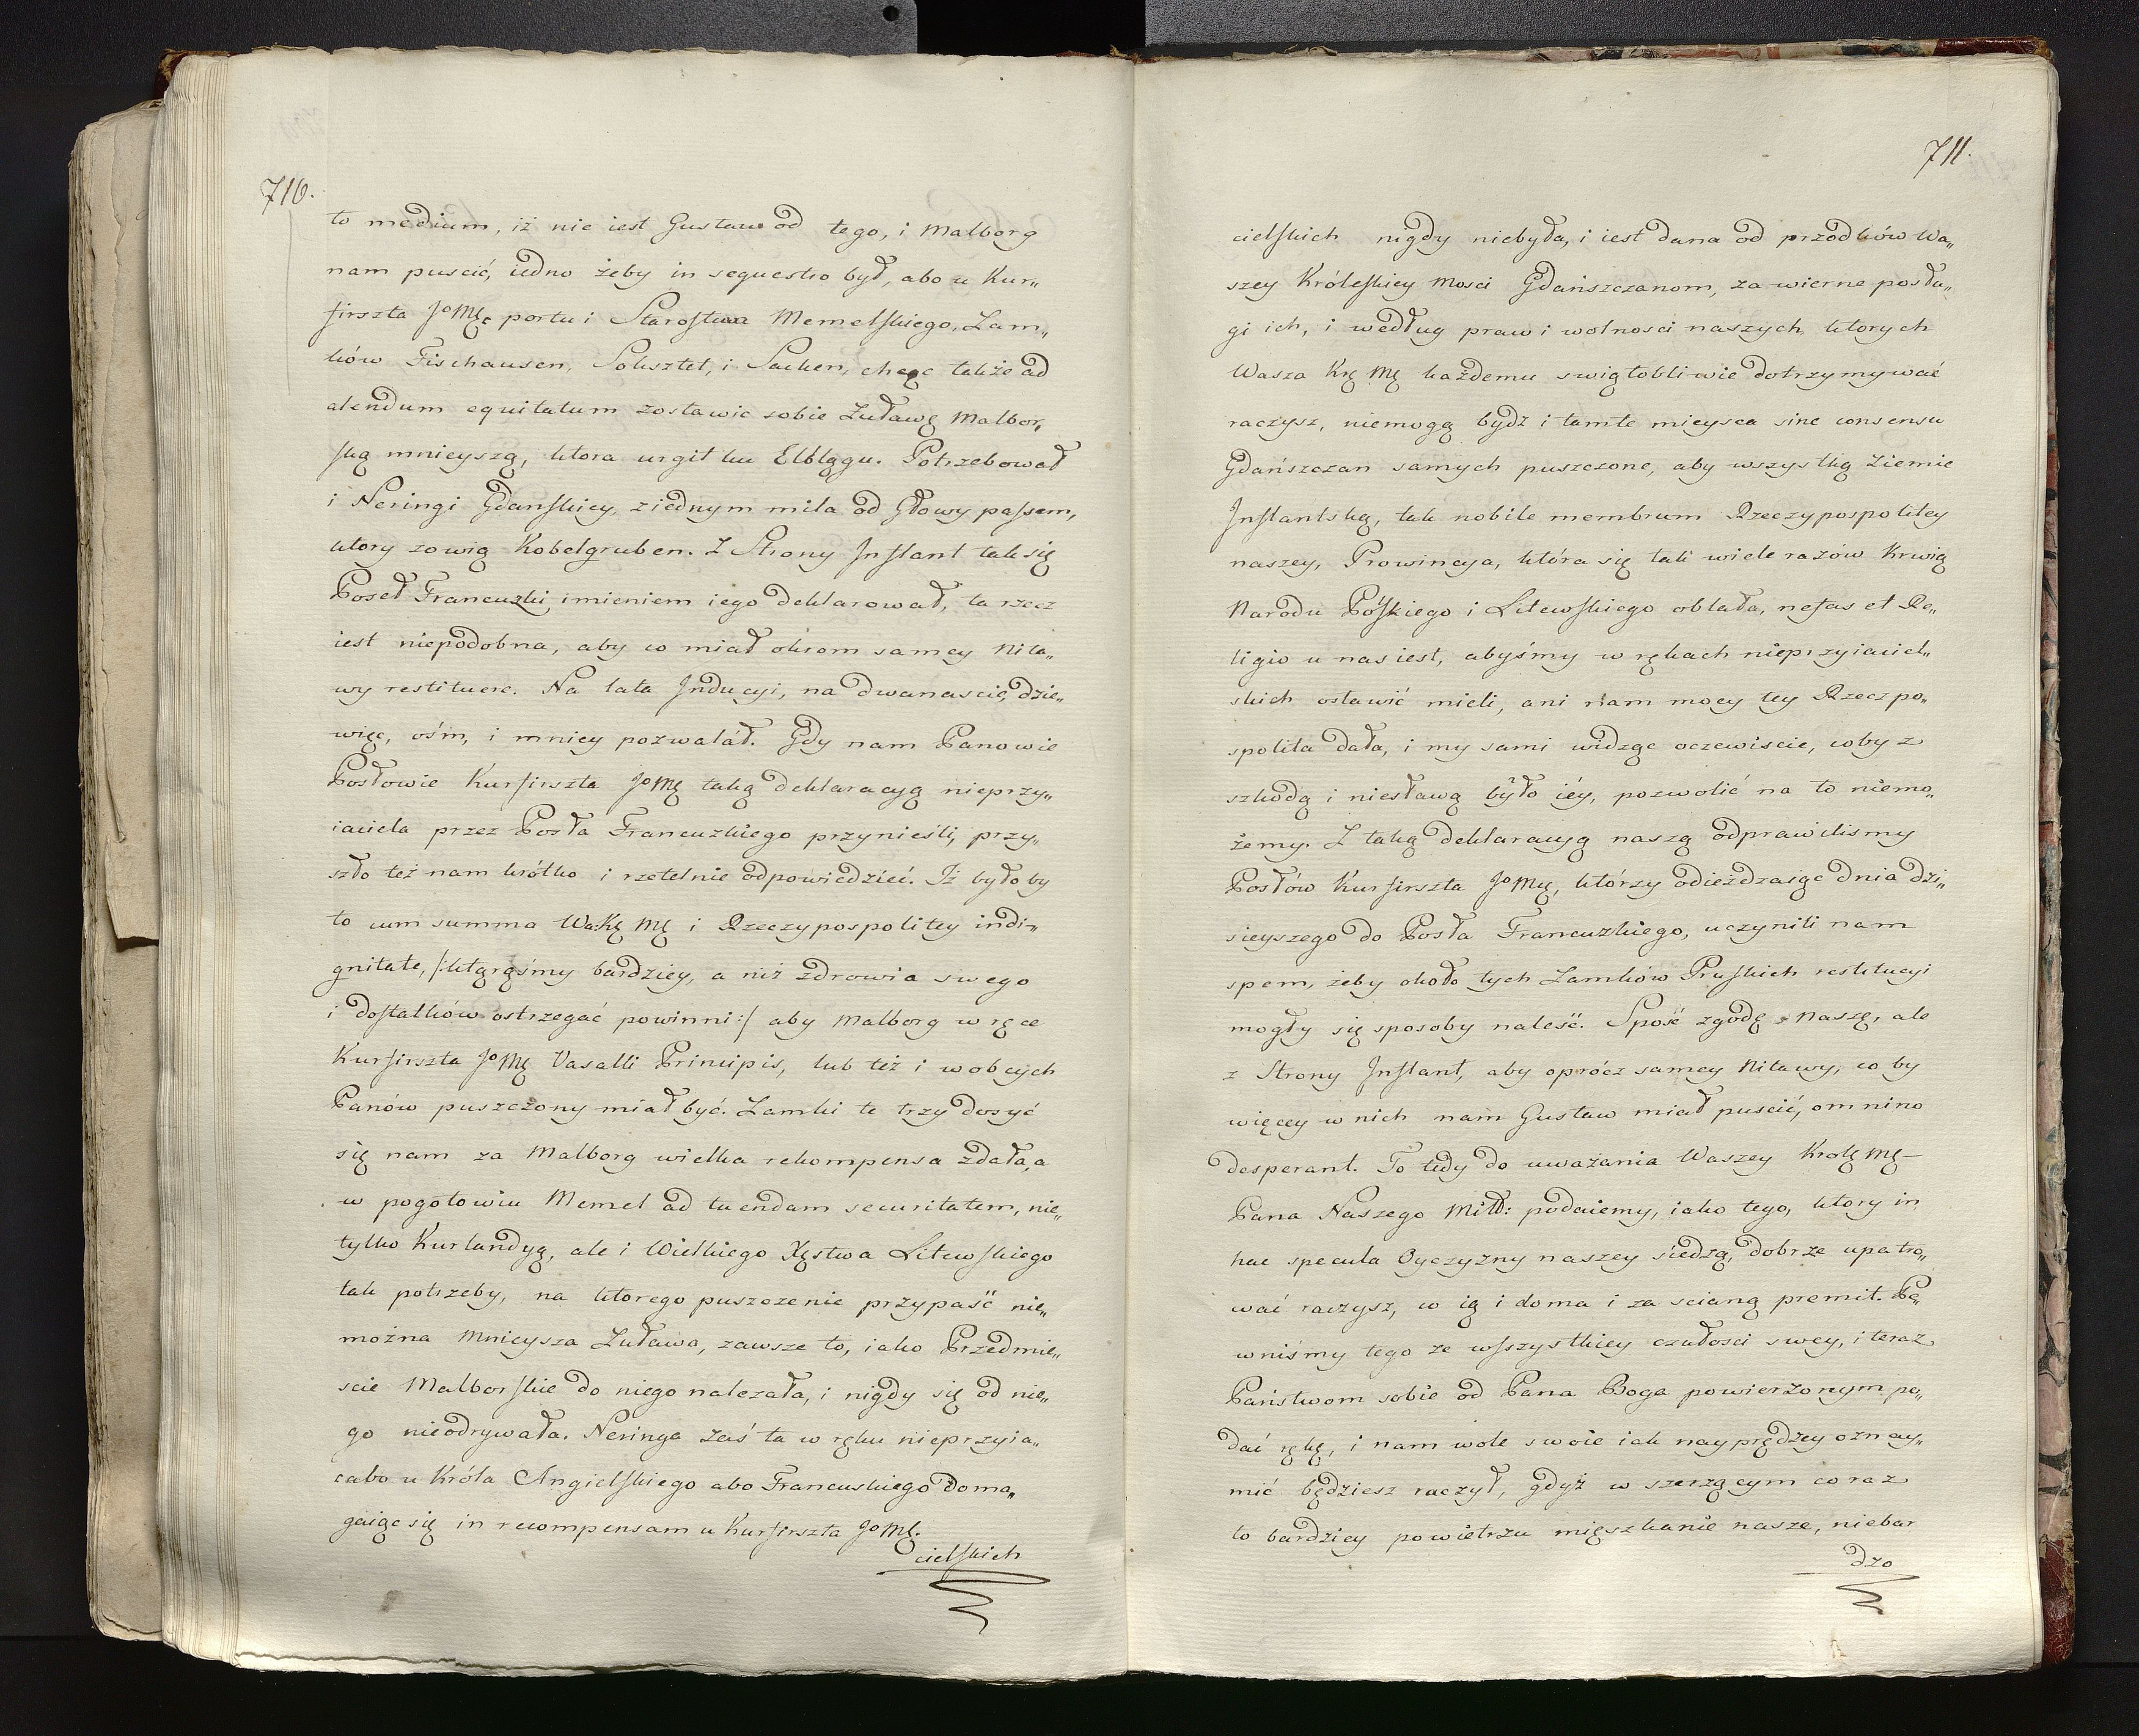 710.
to medium, iż nie iest Gustaw od tego, i Malborg
nam puscić, iedno żeby in sequestro był, abo u Kur„
firszta JoMę portu i Starostwa Memelskiego, Zam„
ków Fischausen, Loksztet, i Sacken, chcąc także ad
alendum equitatum zostawic sobie Żuławę Malbor„
ską mnieyszą, ktora urgit ku Elblągu. Potrzebował
i Neringi Gdanskiey, ziednym mila od Głowy passem,
ktory zowią Kobelgruben. Z Strony Inflant tak się
Poseł Francuzki imieniem iego deklarował, ta rzecz
iest niepodobna, aby co miał okrom samey Mita„
wy restituere. Na lata Inducyi, na dwanascie, dzie„
więc, ośm, i mniey pozwalał. Gdy nam Panowie
Posłowie Kurfirszta JoMę taką deklaracyą nieprzy„
iaciela przez Posła Francuzkiego przynieśli, przy„
szło też nam krótko i rzetelnie odpowiedzieć. Iż było by
to cum summa Wa:Kę Mę i Rzeczypospolitey indi„
gnitate, /:ktąrąśmy bardziey, a niż zdrowia swego
i dostatków ostrzegać powinni:/ aby Malborg w ręce
Kurfirszta JoMę Vasalli Principis, lub też i wobcych
Panów puszczony miał być. Zamki te trzy dosyć
się nam za Malborg wielka rekompensa zdała, a
w pogotowiu Memel ad tuendam securitatem, nie„
tylko Kurlandyą, ale i Wielkiego Xęstwa Litewskiego
tak potrzeby, na ktorego puszczenie przypaść nie„
można Mnieysza Żuława, zawsze to, iako Przedmie„
scie Malborskie do niego nalezała, i nigdy się od nie„
go nieodrywała. Neringa zaś ta w ręku nieprzyia„
cabo u Króla Angielskiego abo Francuskiego doma„
gaiąc się in recompensam u Kurfirszta JoMę.
cielskich
711.
cielskich nigdy niebyła, i iest dana od przodków Wa„
szey Królestkiey Mosci Gdańszczanom, za wierne posłu„
gi ich, i według praw i wolnosci naszych, ktorych
Wasza Kę Mę każdemu swiątobliwie dotrzymywać
raczysz, niemogą bydź i tamte mieysca sine consensu
Gdańszczan samych puszczone, aby wszystką Ziemie
Inflantską, tak nobile membrum Rzeczypospolitey
naszey, Prowincya, która się tak wiele razów Krwią
Narodu Pólskiego i Litewskiego oblała, nefas et Re„
ligio u nas iest, abyśmy w rękach nieprzyiaciel„
skich ostawić mieli, ani nam mocy tey Rzeczpo„
spolita dała, i my sami widząc oczewiscie, coby z
szkodą i niesławą było iéy, pozwolić na to niemo„
żemy. Z taką deklaracyą naszą odprawilismy
Posłów Kurfirszta JoMę, którzy odieżdzaiąc dnia dzi„
sieyszego do Posła Francuzkiego, uczynili nam
spem, żeby około tych Zamków Pruskich restitucyi
mogły się sposoby naleść. Spość zgodę naszę, ale
z Strony Inflant, aby oprócz samey Mitawy, co by
więcey w nich nam Gustaw miał puscić, omnino
desperant. To tedy do uważania Waszey Krolę Mę
Pana Naszego Miłł: podaiemy, iako tego, ktory in
hac specula Oyczyzny naszey siedzą, dobrze upatro„
wać raczysz, co ią i doma i za scianą premit. Pe„
wniśmy tego ze wszystkiey czułosci swey, i teraz
Państwom sobie od Pana Boga powierzonym po„
dać rękę, i nam wole swoie iak nayprędzey oznay„
mić będziesz raczył, gdyż w szerzącym co raz
to bardziey powietrzu mięszkanie nasze, niebar
dzo